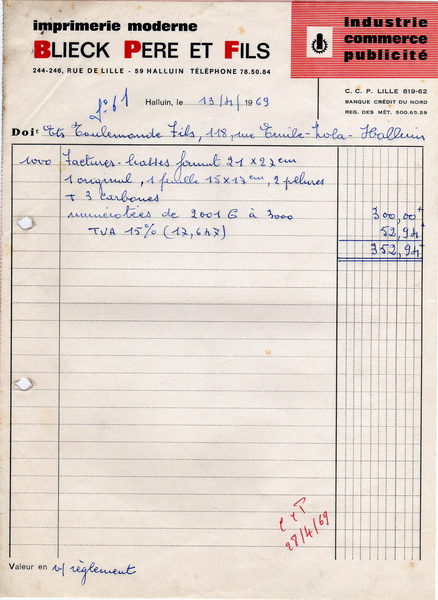 imprimerie moderne
BLIECK PERE ET FILS
244-246, RUE DE LILLE - 59 HALLUIN TÉLÉPHONE 78.50.84
industrie
commerce
publicité
C. C. P. LILLE 819-62
BANQUE CRÉDIT DU NORD
REG. DES MÉT. 500.65.59
Halluin, le 13/4/1969
Doit Ets Toulemonde Fils, 118, rue Emile-Zola-Halluin
1000 Factures-liasses format 21 x 27 cm
1 original, 1 feuille 15x17 cm, 2 pelures
+ 3 carbones
numérotées de 2001 à 3000 300,00
TVA 15% (17,647) 52,94
352,94
28/4/69
Valeur en v/ règlement